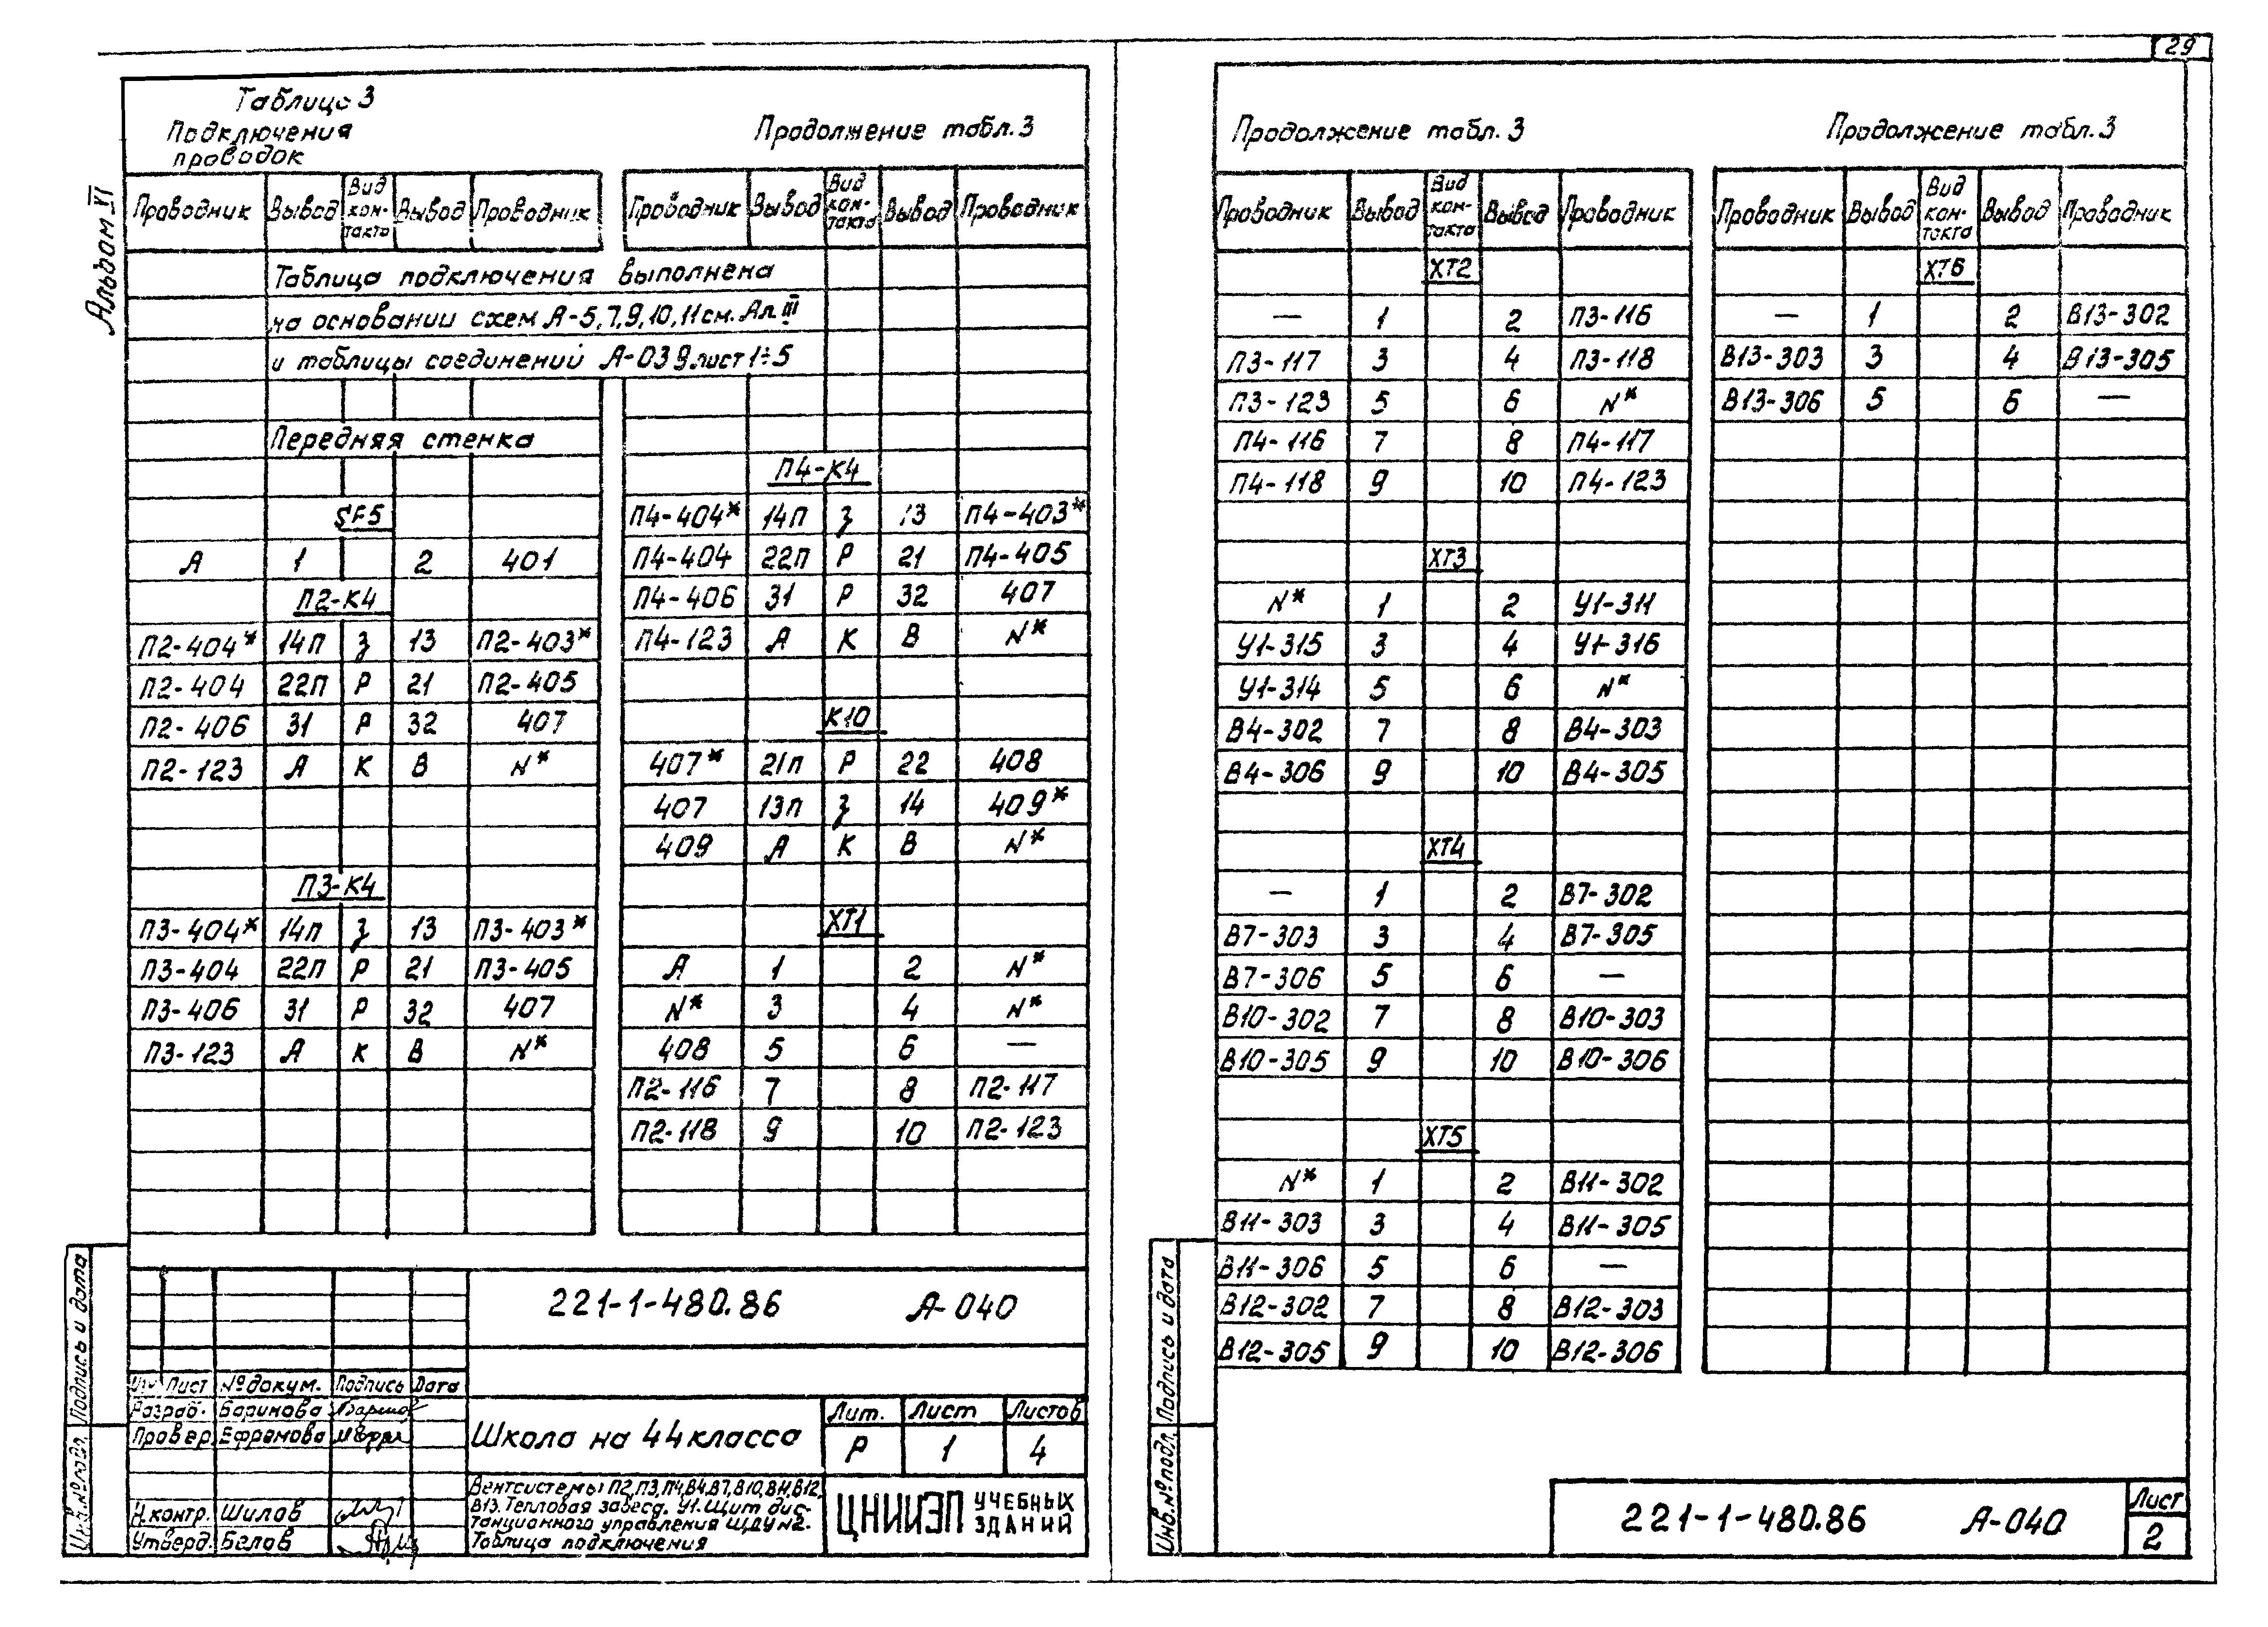 29
Альбом VI
Таблица 3
Подключения
проводок
Проводник Вывод Вид контакта Вывод Проводник
Таблица подключения выполнена
на основании схем А-5,7,9,10,11 см. Ал. III
и таблицы соединений А-039 лист 1÷5
Передняя стенка
SF5
А 1 2 401
П2-К4
П2-404* 14П З 13 П2-403*
П2-404 22П Р 21 П2-405
П2-406 31 Р 32 407
П2-123 А К В N*
П3-К4
П3-404* 14П З 13 П3-403*
П3-404 22П Р 21 П3-405
П3-406 31 Р 32 407
П3-123 А К В N*
Продолжение табл. 3
Проводник Вывод Вид контакта Вывод Проводник
П4-К4
П4-404* 14П З 13 П4-403*
П4-404 22П Р 21 П4-405
П4-406 31 Р 32 407
П4-123 А К В N*
К10
407* 21П Р 22 408
407 13П З 14 409*
409 А К В N*
ХТ1
А 1 2 N*
N* 3 4 N*
408 5 6 —
П2-116 7 8 П2-117
П2-118 9 10 П2-123
221-1-480.86 А-040
Изм Лист № докум. Подпись Дата
Разраб. Баринова
Провер. Ефремова
Н.контр. Шилов
Утверд. Белов
Школа на 44 класса
Лит. Лист Листов
Р 1 4
Вентсистемы П2,П3,П4,В4,В7,В10,В11,В12,
В13. Тепловая завеса. У1. Щит дис-
танционного управления ЩДУ№2.
Таблица подключения
ЦНИИЭП УЧЕБНЫХ ЗДАНИЙ
Подпись и дата
Инв.№ подл.
Продолжение табл. 3
Проводник Вывод Вид контакта Вывод Проводник
ХТ2
— 1 2 П3-116
П3-117 3 4 П3-118
П3-123 5 6 N*
П4-116 7 8 П4-117
П4-118 9 10 П4-123
ХТ3
N* 1 2 У1-311
У1-315 3 4 У1-316
У1-314 5 6 N*
В4-302 7 8 В4-303
В4-306 9 10 В4-305
ХТ4
— 1 2 В7-302
В7-303 3 4 В7-305
В7-306 5 6 —
В10-302 7 8 В10-303
В10-305 9 10 В10-306
ХТ5
N* 1 2 В11-302
В11-303 3 4 В11-305
В11-306 5 6 —
В12-302 7 8 В12-303
В12-305 9 10 В12-306
Продолжение табл. 3
Проводник Вывод Вид контакта Вывод Проводник
ХТ6
— 1 2 В13-302
В13-303 3 4 В13-305
В13-306 5 6 —
Подпись и дата
Инв.№ подл.
221-1-480.86 А-040
Лист
2